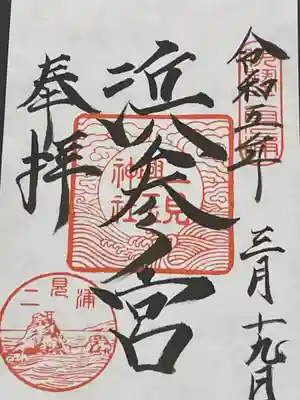 令和五年
三月十九日
浜参宮
奉拝
二見興玉神社
二見浦